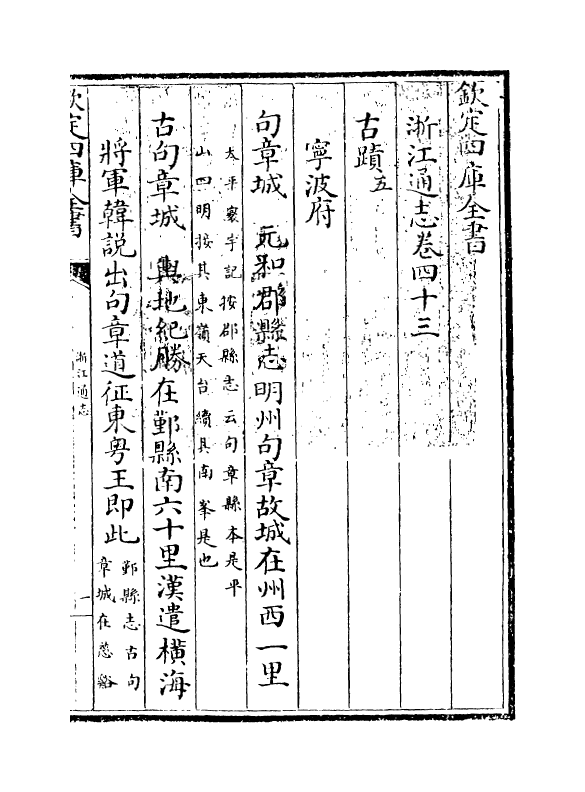 欽定四庫全書
浙江通志卷四十三
古蹟五
寧波府
句章城 元和郡縣志明州句章故城在州西一里
太平寰宇記按郡縣志云句章縣本是平
山四明按其東嶺天台續其南峯是也
古句章城 輿地紀勝在鄞縣南六十里漢遣橫海
將軍韓説出句章道征東粤王即此
鄞縣志古句
章城在慈谿
欽定四庫全書
浙江通志
一